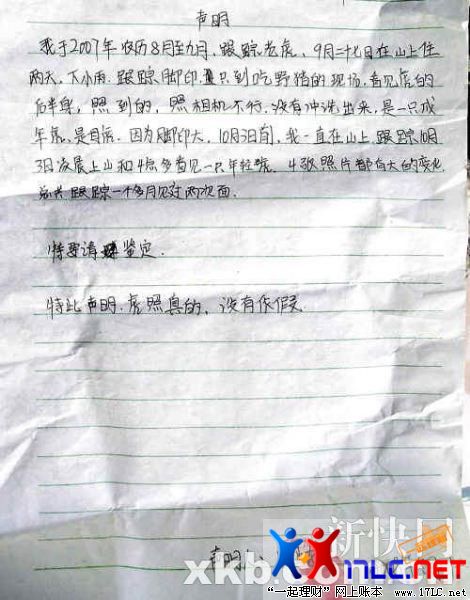 声明
我于2007年农历8月至九月,跟踪老虎,9月二十七日在山上住
两天,下小雨,跟踪脚印,直到吃野猪的现场,看见虎的
后半身,照到的,照相机不行,没有冲洗出来,是一只成
年虎,是母虎.因为脚印大,10月3日前,我一直在山上跟踪10月
3日凌晨上山和4点多看见一只年轻虎.4张照片都有大的变化
总共跟踪一个多月见过两次面.
特要请 鉴定.
特此声明.虎照真的,没有作假.
声明人
新快网
xkb.com
17LC.net
“一起理财”网上账本 www.17LC.net